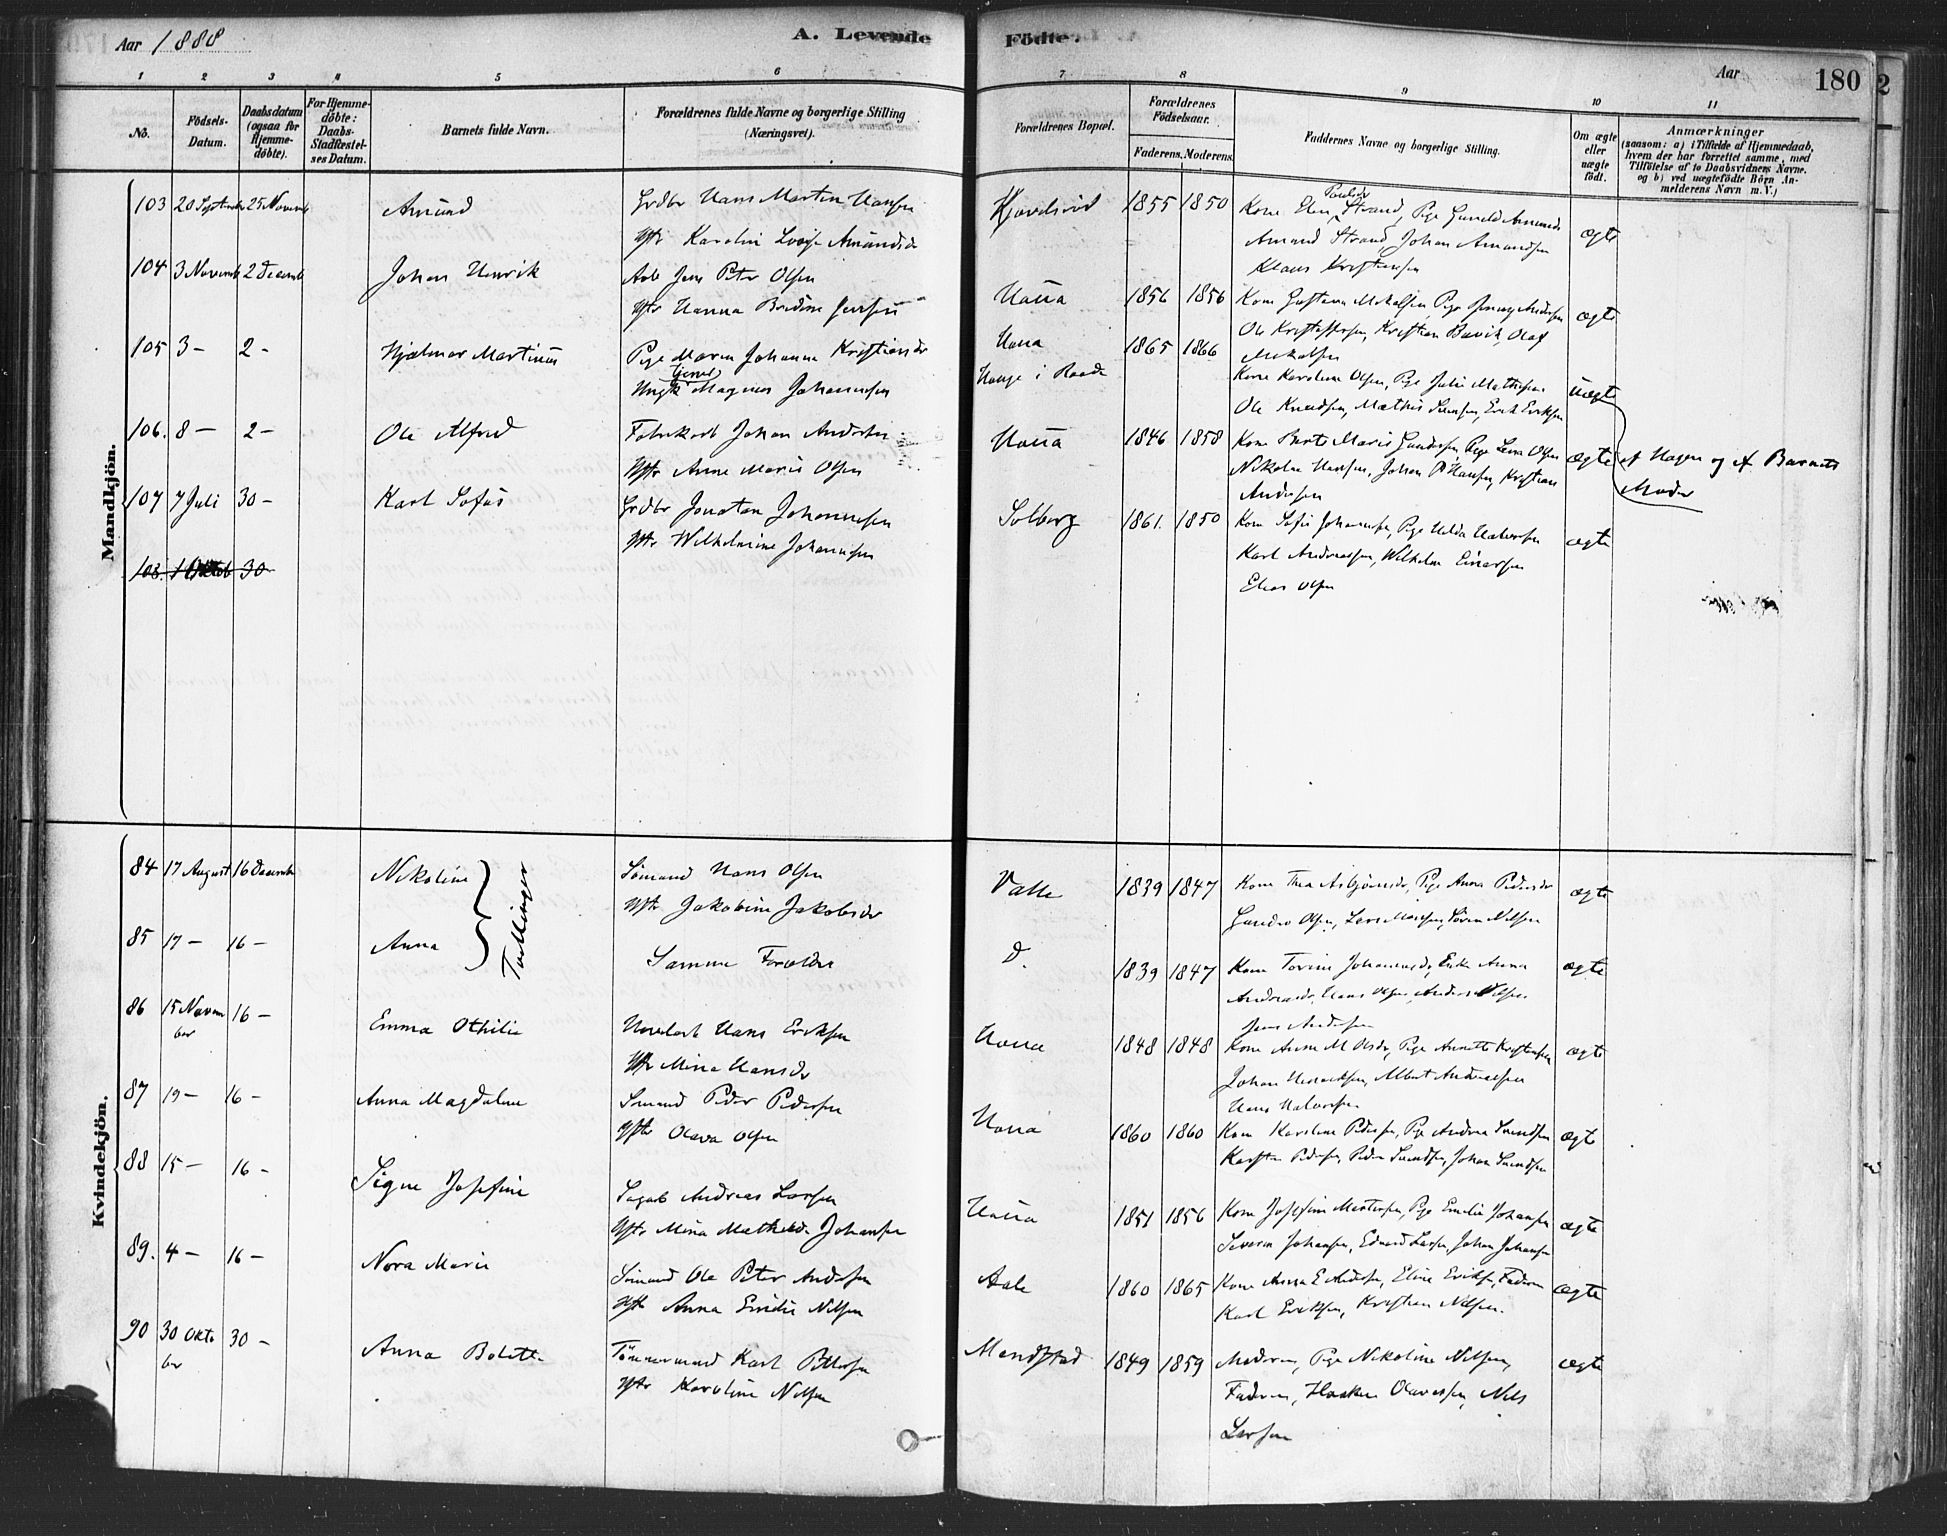 Aar 1888
A. Levende Födte.
Aar 180
1 2 3 4 5 6 7 8 9 10 11
No.
Födsels-Datum.
Daabsdatum (ogsaa for Hjemme-döbte).
For Hjemme-döbte: Daabs-Stadfæstel-ses Datum.
Barnets fulde Navn.
Forældrenes fulde Navne og borgerlige Stilling (Næringsvei).
Forældrenes Bopæl.
Forældrenes Födselsaar.
Faderens. Moderens.
Faddernes Navne og borgerlige Stilling.
Om ægte eller uægte födt.
Anmærkninger
(saasom: a) i Tilfælde af Hjemmedaab,
hvem der har forrettet samme, med
Tilföielse af to Daabsvidners Navne.
og b) ved uægtefödte Börn An-
melderens Navn m. V.)
Mandkjön.
103 20 Septembr 25 Novemb Amund Grdbr Hans Martin Hansen 1855 1850 Kone Elen Strand, Pige Amunds
Hstr Karolin Lovise Amundsdr Amund Strand, Johan Amundsen ægte
Klaus Kristensen
104 3 Novemb 2 Decemb Johan Henrik Arb Jens Peter Olsen Houa 1856 1856 Kone Gustava Mikalsen, Pige Jenny Andersen ægte
Hstr Hanna Bredine Jensen Ole Kristoffersen, Kristian Bavik, Olaf
Mikalsen
105 3 - 2 - Hjalmar Martinus Pige Maren Johanne Kristiansdr Houa 1865 1866
Ungk Magnus Johannesen Hauge i Raade Kone Karoline Olsen, Pige Julie Mathisen uægte
Ole Knudsen, Mathis Svensen, Erik Eriksen
106. 8 - 2 - Ole Alfred Fabrikarb Johan Andersen Houa 1846 1858 Kone Berte Marie Gundersen, Pige Lina Olsen ægte
Hstr Anne Marie Olsen Nikolai Hansen, Johan P Hansen, Kristian
Andersen
af Hagen og af Barnets
Moder
107 7 Juli 30 - Karl Sofus Grdbr Jonatan Johannesen Solberg 1861. 1850 Kone Sofie Johannesen, Pige Hilda Halvorsen ægte
Hstr Wilhelmine Johannesen Karl Andreassen, Wilhelm Einersen
Elias Olsen
108. 1 Oktob 30
Kvindekjön.
84 17 August 16 Decembr Nikoline Sömand Hans Olsen Valle 1839 1847 Kone Thea Asbjörnsdr, Pige Anna Pedersdr ægte
Hstr Jakobine Jakobsdr Gunder Olsen, Lars Mossesen, Sören Nilsen
Tvillinger
85 17 - 16 - Anna Samme Forældre D. 1839 1847 Kone Torine Johannesdr, Enke Anna ægte
Andreasdr, Hans Olsen, Anders Nilsen
Jens Andersen
86 15 Novem 16 - Emma Othilie Hans Eriksen Houa 1848 1848 Kone Anne M Olsdr, Pige Annette Kristensen ægte
ber Hstr Mina Hansdr Johan Henriksen, Albert Andreassen
Hans Halvorsen
87 19 - 16 - Anna Magdalene Sömand Peder Pedersen Houa 1860 1860 Kone Karoline Pedersen, Pige Andrea Svendsen ægte
Hstr Olava Olsen Karsten Pedersen, Peder Svendsen, Johan Svendsen
88 15 - 16 - Signe Josefine Sagarb Andreas Larsen Houa 1851 1856 Kone Josefine Mortensen, Pige Emilie Johansen ægte
Hstr Mina Mathilde Johansen Severin Johansen, Edvard Larsen, Johan Johansen
89. 4 - 16 - Nora Marie Sömand Ole Peter Andersen Aale 1860 1865 Kone Anna E Andersen, Eline Eriksen, Faderen ægte
Hstr Anna Emilie Nilsen Karl Eriksen, Kristian Nilsen.
90 30 Okto 30 - Anna Bolette Tömmermand Karl Pettersen Mendstad 1849 1859 Moderen, Pige Nikoline Nilsen, ægte
ber Hstr Karoline Nilsen Faderen, Haaken Olavessen, Nils
Larsen